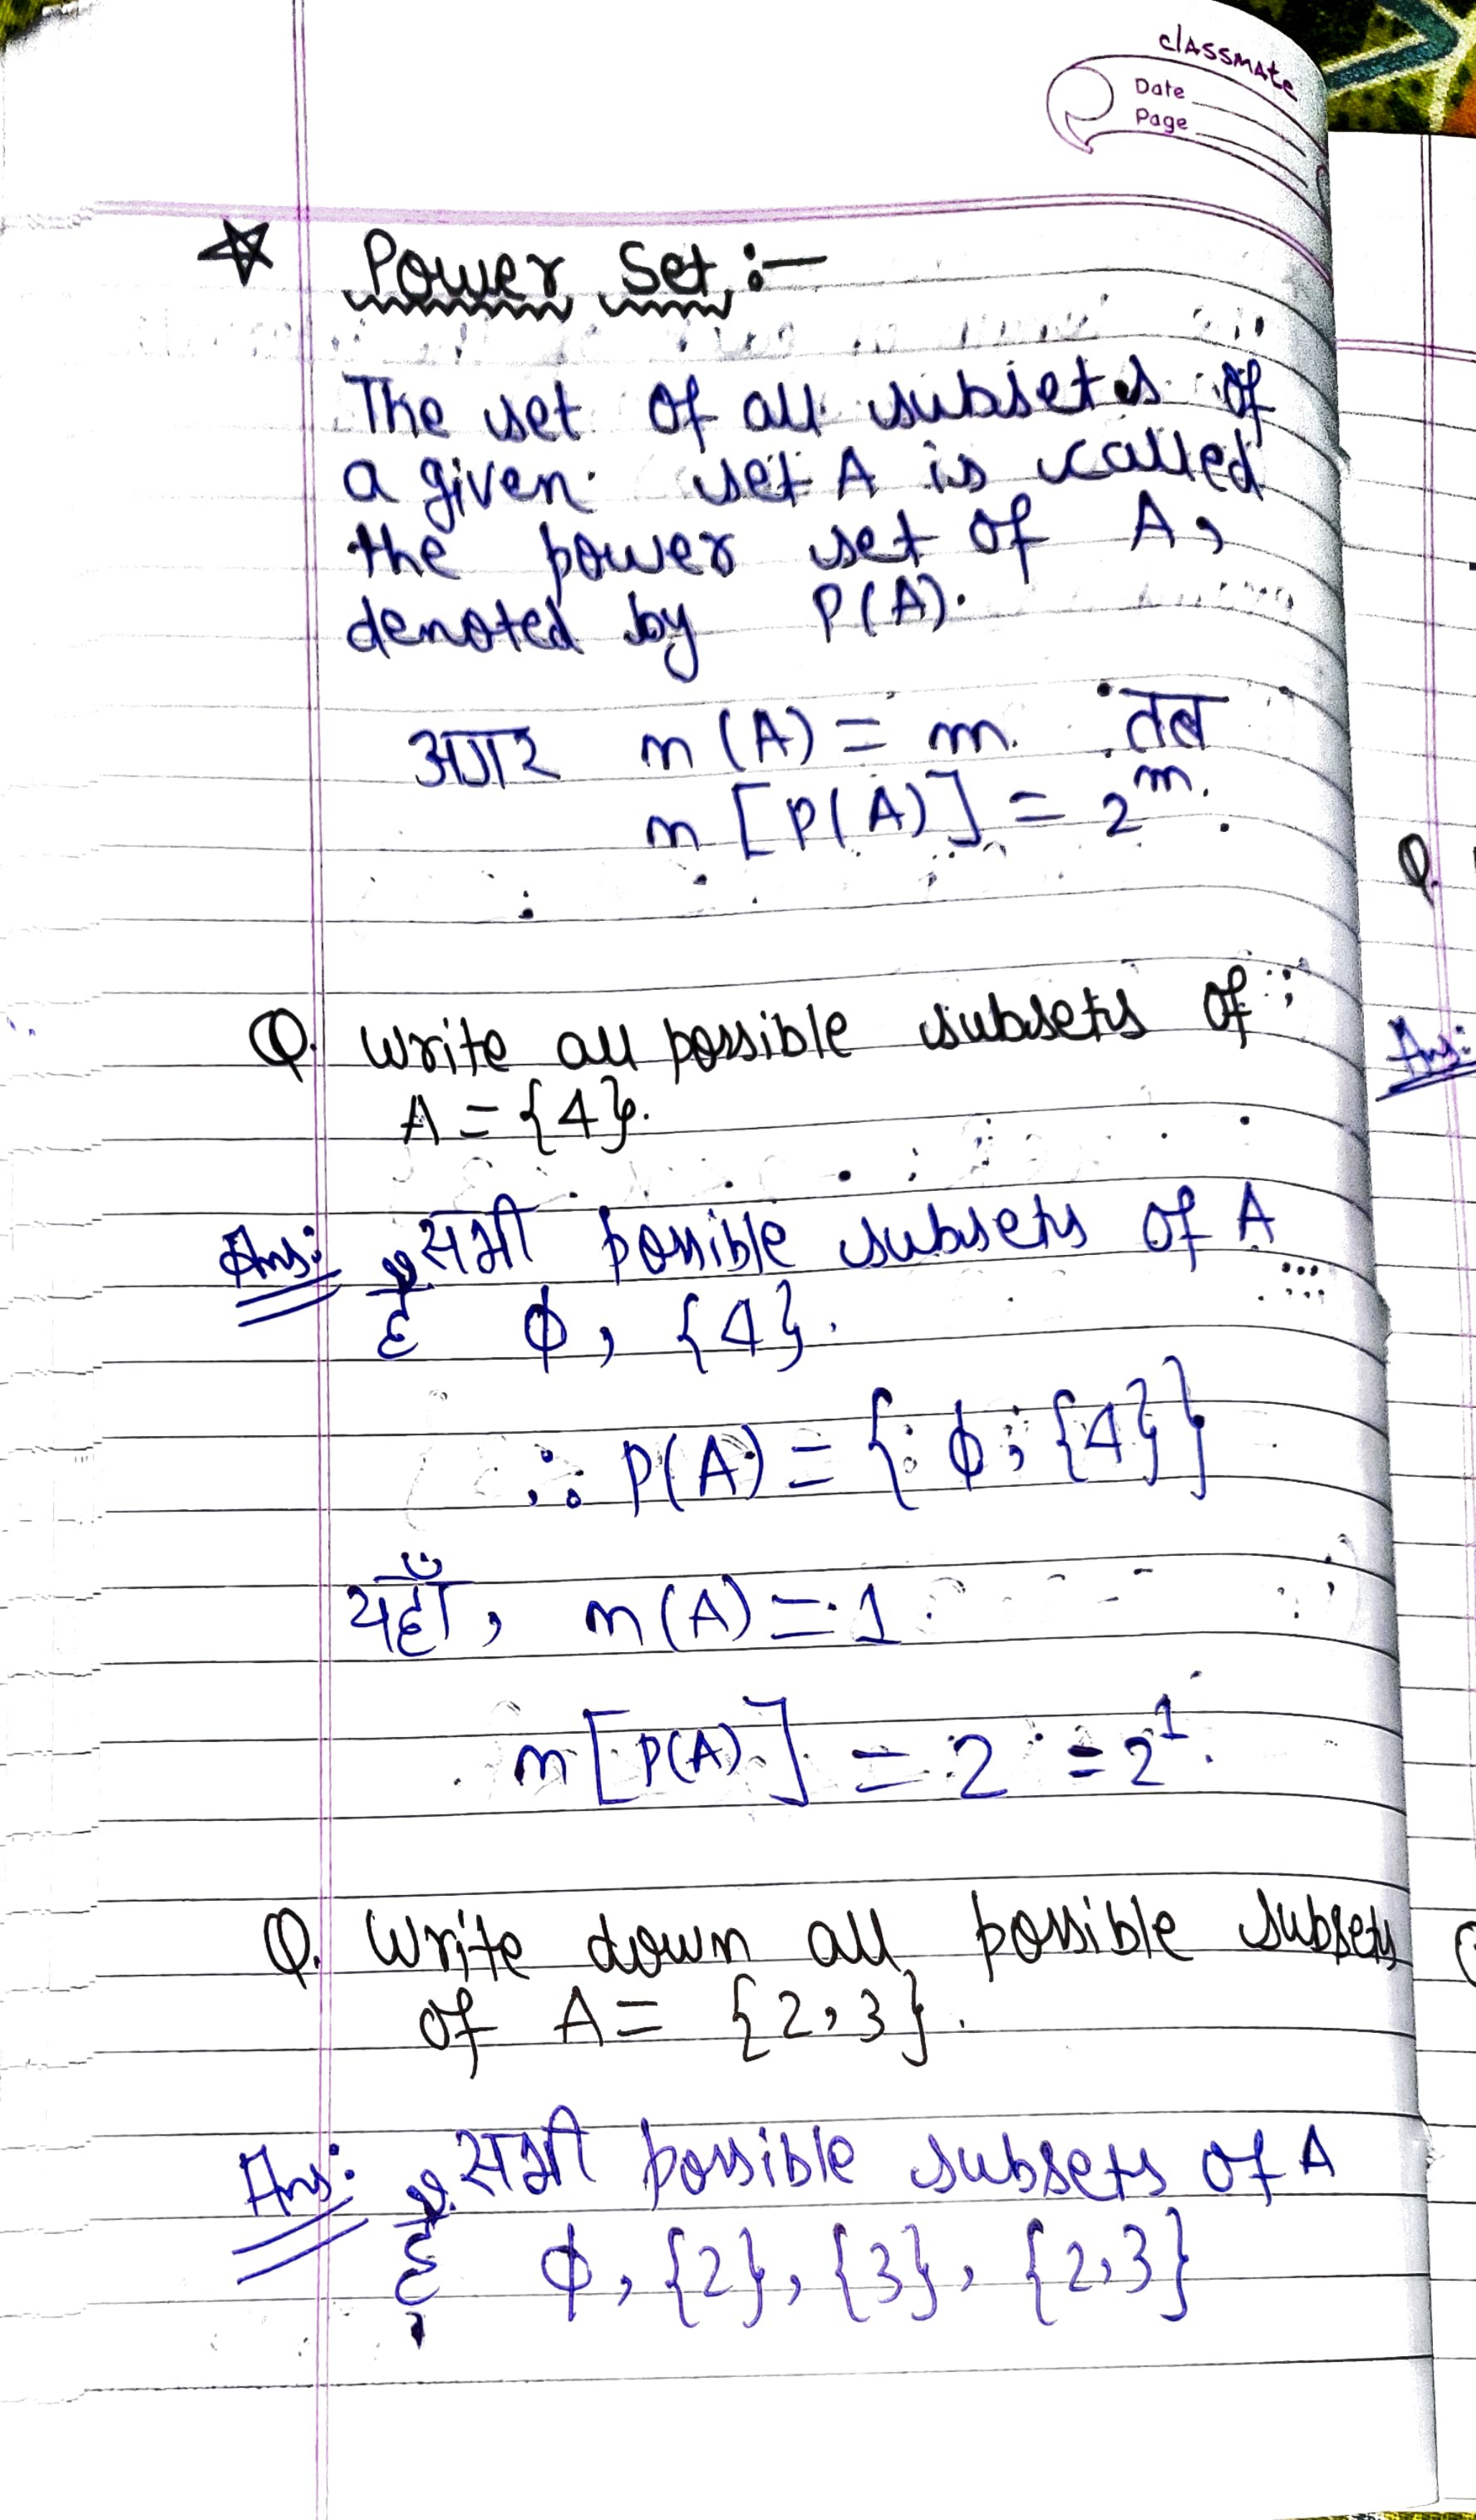 classmate
Date
Page
☆ Power Set :-
The set of all subsets of
a given set A is called
the power set of A,
denoted by P(A).
अगर n (A) = m. तब
n [P(A)] = 2^m.
Q. Write all possible subsets of
A = {4}.
Ans: सभी possible subsets of A
हैं ϕ, {4}.
∴ P(A) = { ϕ, {4}}
यहाँ, n (A) = 1
n [P(A)] = 2 = 2^1.
Q. Write down all possible subsets
of A = {2,3}.
Ans: सभी possible subsets of A
हैं ϕ, {2}, {3}, {2,3}
Q.
Ans: